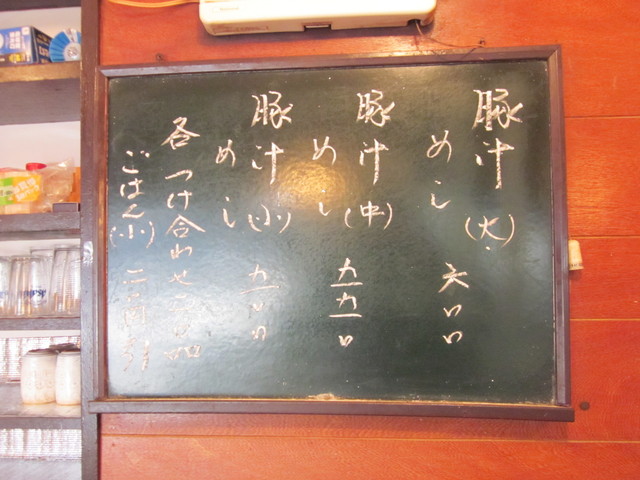 豚汁(大)
めし 六〇〇
豚汁(中)
めし 五五〇
豚汁(小)
めし 五〇〇
各つけ合わせ
ごはん(小) 円引